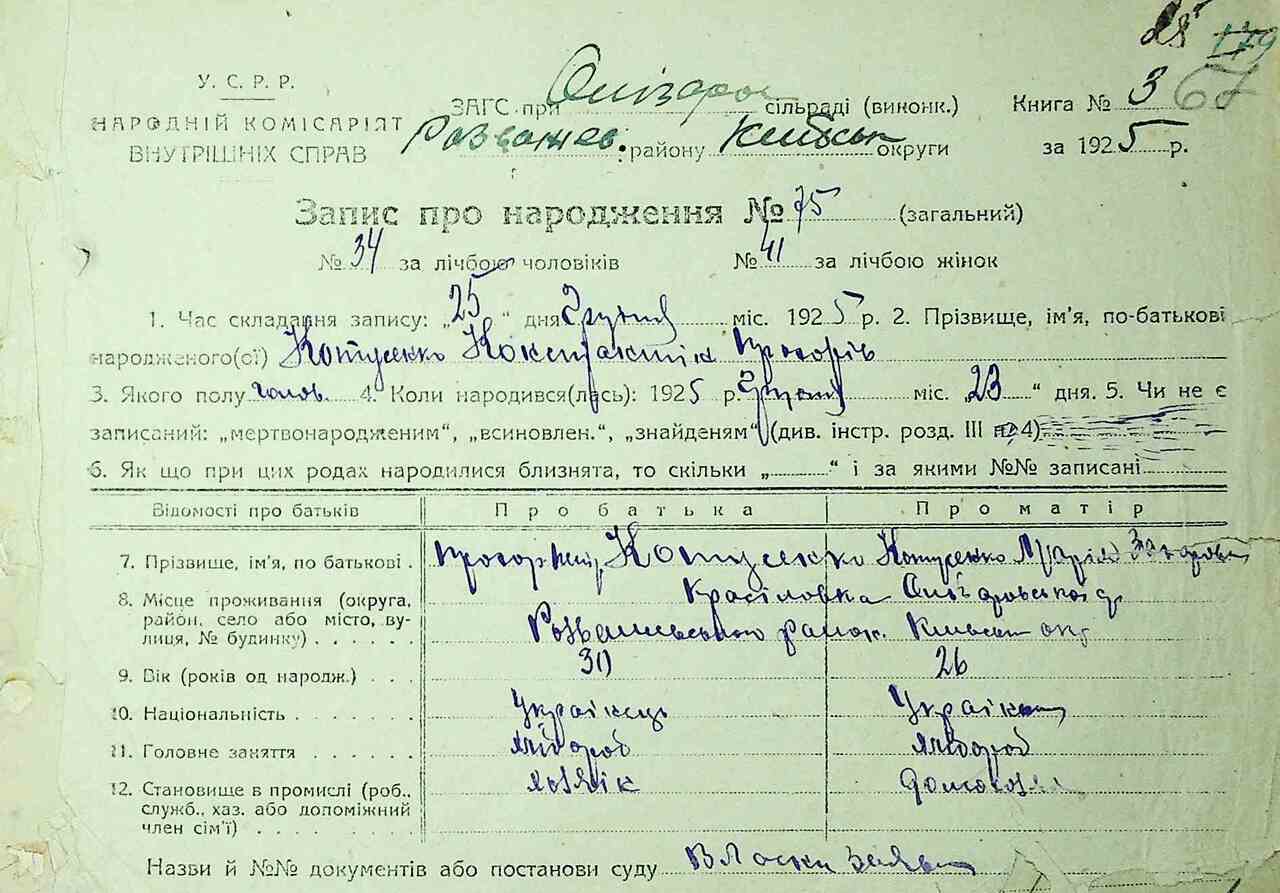 179
У. С. Р. Р.
НАРОДНІЙ КОМІСАРІЯТ
ВНУТРІШНІХ СПРАВ
ЗАГС при сільраді (виконк.) Книга № 3 67
Розважев. району Київськ округи за 1925 р.
Запис про народження № 75 (загальний)
№ 34 за лічбою чоловіків № 41 за лічбою жінок
1. Час складання запису: „25“ дня Грудня міс. 1925 р. 2. Прізвище, ім'я, по-батькові
народженого(ої) Котусенко Константін Прохорів
3. Якого полу чолов. 4. Коли народився(лась): 1925 р. Грудня міс. „23“ дня. 5. Чи не є
записаний: „мертвонародженим“, „всиновлен.“, „знайденям“ (див. інстр. розд. III 4)
6. Як що при цих родах народилися близнята, то скільки „ “ і за якими №№ записані
Відомості про батьків Про батька Про матір
7. Прізвище, ім'я, по батькові . Прохор Котусенко Котусенко Марія Захаровн
8. Місце проживання (округа, Красіловка
район, село або місто, ву-
лиця, № будинку) . . . . . Розважівського район. Київськ окр
9. Вік (років од народж.) . . . 30 26
10. Національність . . . . . . Українець Українка
11. Головне заняття . . . . . . хлібороб хлібороб
12. Становище в промислі (роб., хозяїн домохоз
служб., хаз. або допоміжний
член сім'ї) . . . . . . . .
Назви й №№ документів або постанови суду Власна заява